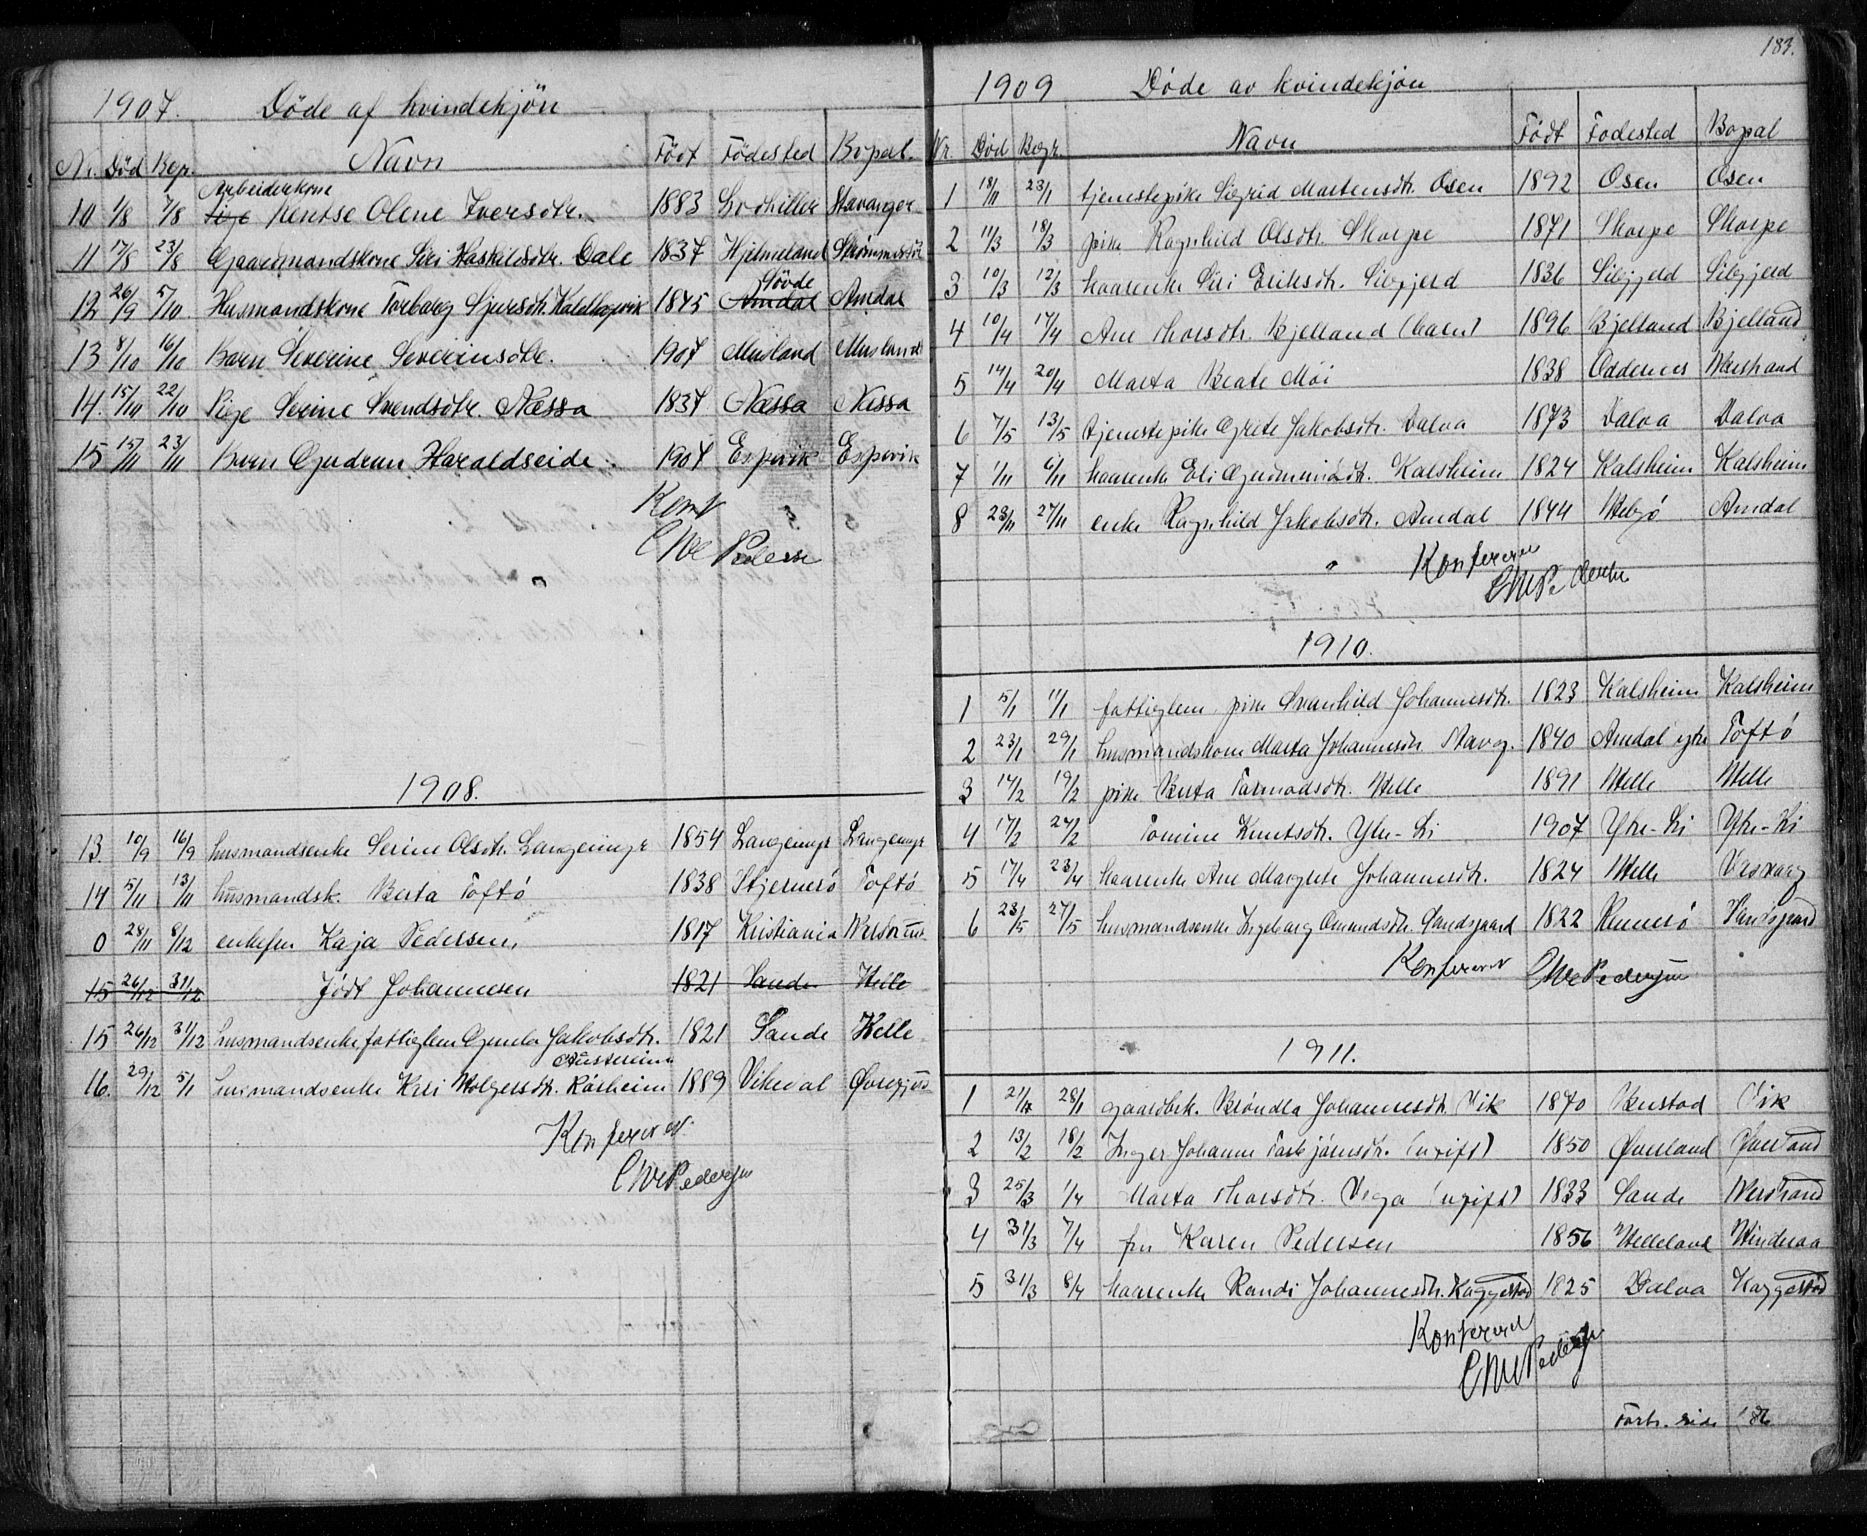 1907. Döde af kvindekjön
Nr. Död Begr. Navn Född Födested Bopæl.
Arbeiderkone
10 1/8 7/8 Pige Kentse Olene Iversdtr. 1883 Stavanger
11 17/8 23/8 Gaardmandskone Siri Haskildsdtr. Dale 1837 Hjelmeland
Søvde
12 26/9 5/10 Husmandskone Torborg Sjursdtr. 1845 Amdal Amdal
13 8/10 16/10 Barn Severine Severinsdtr. 1907 Musland Musland
14. 15/10 22/10 Pige Serine Svendsdtr. Næssa 1837 Næssa Næssa
15 15/11 23/11 Barn Gudrun Haraldseide. 1907 Espevik Espevik
Konf
CMe Pedersen
1908.
13 10/9 16/9 husmandsenke Serine Olsdtr. Langeinge 1854 Langeinge Langeinge
14 5/11 13/11 husmandsk. Berta Toftö 1838 Stjernerö Toftö
0 28/11 8/12 enkefru Kaja Pedersen, 1817 Kristiania
15 26/12 31/12 Födt Johannesen 1821 Sande Helle
15 26/12 31/12 husmandsenke fattiglem Gunla Jakobsdtr. 1821 Sande Helle
16. 29/12 5/1 husmandsenke Kari Holgersdtr. Rörheim 1889 Vikedal
Konfererer
CMe Pedersen
183.
1909 Döde av kvindekjön
Nr. Död Begr. Navn Födt Fodested Bopal
1 18/11 23/1 tjenestepike Sigrid Martensdtr. Osen 1892 Osen Osen
2 11/3 18/3 pike Ragnhild Olsdtr. Skorpe 1871 Skorpe Skorpe
3 10/3 12/3 kaarenke Siri Eriksdtr. Sibjerd 1836 Sibjeld Sibjeld
4 10/4 17/4 Ane Thorsdtr. Bjelland (barn) 1896 Bjelland Bjelland
5 14/4 20/4 Marta Beate Moi 1838 Oddernes Nerstrand
6 7/5 13/5 tjenestepike Grete Jakobsdtr. Dalva 1873 Dalva Dalva
7 1/11 6/11 kaarenke Eli Gudmundsdtr. Kalsheim 1824 Kalsheim Kalsheim
8 23/11 27/11 enke Ragnhild Jakobsdtr. Amdal 1844 Hebjö Amdal
Konfererer
CMePedersen
1910.
1 5/1 11/1 fattiglem pike Svanhild Johannesdtr. 1823 Kalsheim Kalsheim
2 23/1 29/1 husmandskone Marta Johannesdtr. 1840 Amdal ytre Toftö
3 14/2 19/2 pike Berta Tormodsdtr. Helle 1891 Helle Helle
4 17/2 24/2 Tomine Knutsdtr. Ytre-Li 1907 Ytre-Li Ytre-Li
5 17/4 23/4 kaarenke Ane Margrete Johannesdtr. 1824 Helle
6 23/5 27/5 husmandsenke Ingeborg Omundsdtr. Sandsgaard 1822 Rennesö Sandsgaard
Konfererer CMePedersen
1911.
1 21/1 28/1 gaardbk. Bröndla Johannesdtr. Vik 1870 Vik
2 13/2 18/2 Inger Johanne Torbjörnsdtr. (ugift) 1850 Överland Överland
3 25/3 1/4 Marta Thorsdtr. Vega (ugift) 1833 Sande Nerstrand
4 31/3 7/4 fru Karen Pedersen 1856 Helleland Hinderaa
5 31/3 8/4 kaarenke Randi Johannesdtr. Kaggestad 1825 Dalva Kaggestad
Konfererer
CMePedersen
Forts. side 186